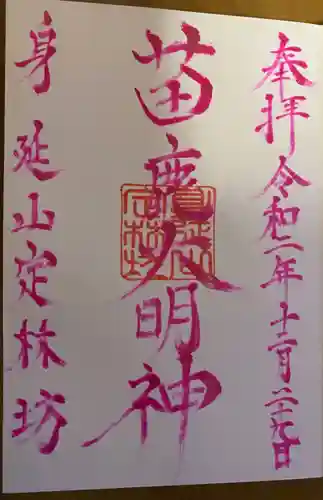 奉拝 令和二年十二月二十九日
苗鹿大明神
身延山定林坊